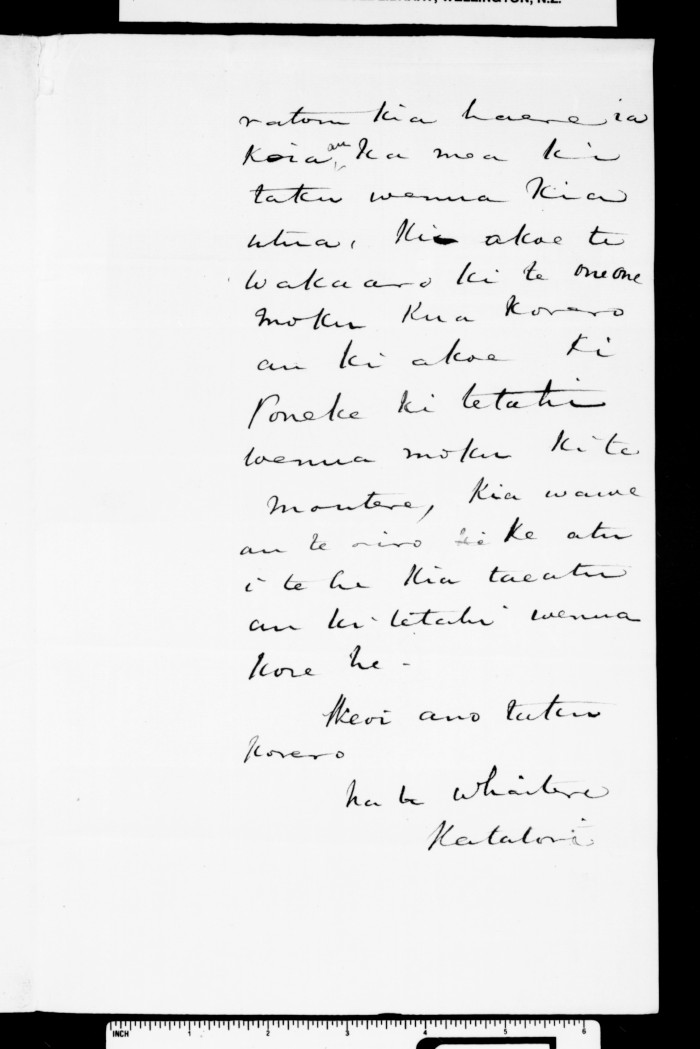 WELLINGTON, N.Z.
ratou kia haere ia
Koia au Ka mea ki
taku wenua Kia
utua, Kia akoe te
wakaaro ki te oneone
moku Kua Korero
au ki akoe Ki
Poneke ki tetahi
wenua moku Ki te
Moutere, Kia wawe
au te riro Ke atu
i te he Kia taeatu
au ki tetahi wenua
Kore he -
Heoi ano taku
Korero
na te Whaitere
Katatori
INCH 1 2 3 4 5 6